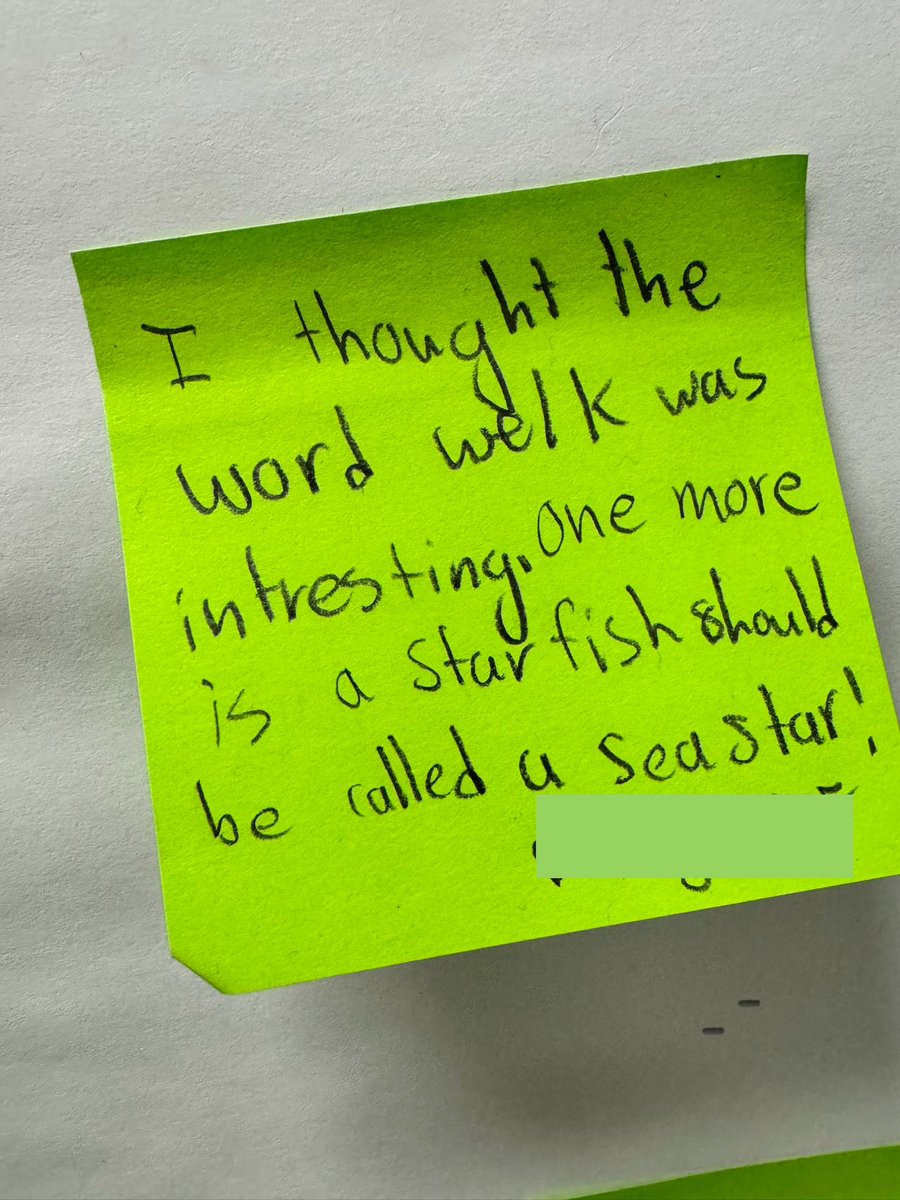 I thought the
word welk was
intresting. One more
is a star fish should
be called a sea star!